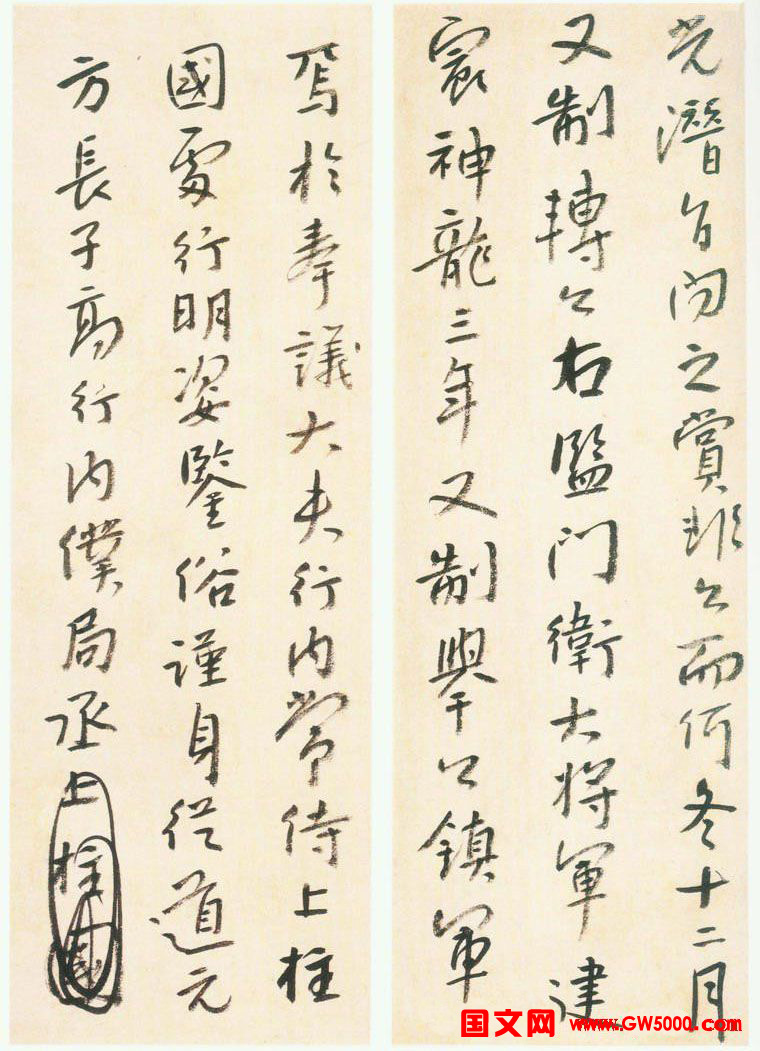 光潛問之賞非公而何冬十二月
又制轉公右監門衛大將軍建
神龍三年又制舉公鎮軍
焉於奉議大夫行內常侍上柱
國雷行明姿鑒俗謹身從道元
方長子高行內僕局丞上柱國
国文网 www.GW5000.com